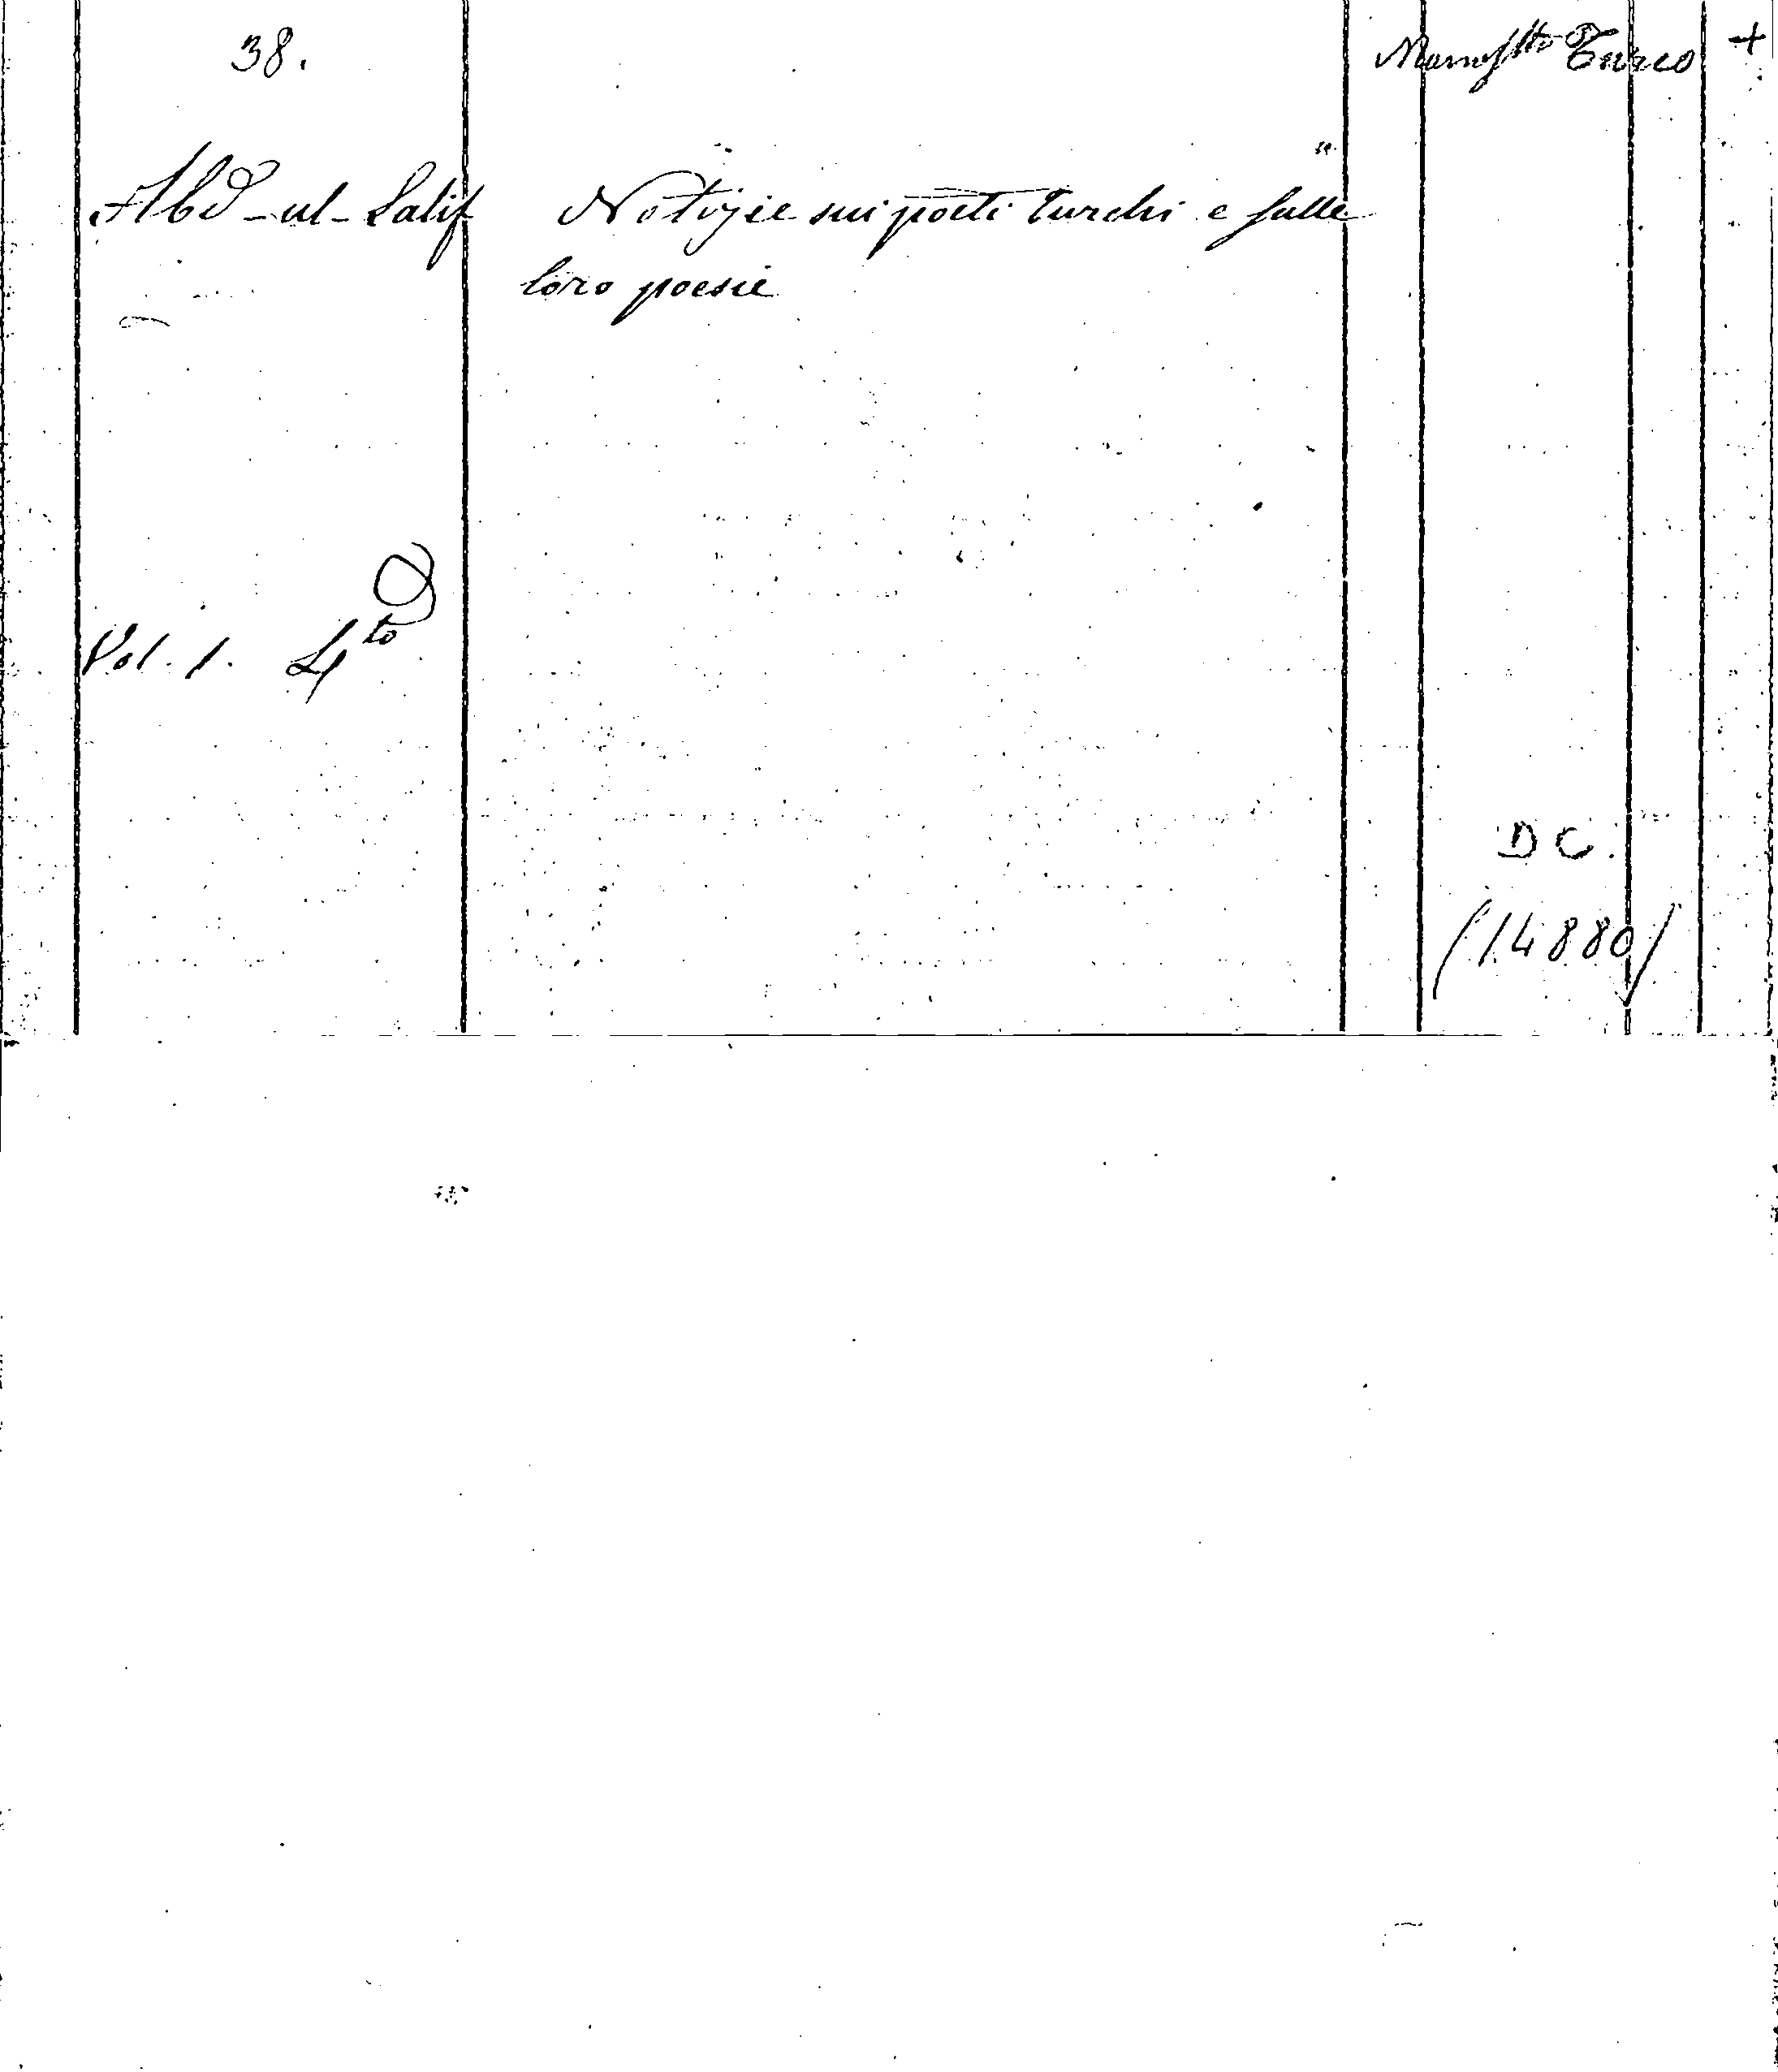 38.
Manosstto Turco +
Abd-ul-Latif Notizie sui poeti turchi e sulle
loro poesie
Vol. 1. 4to
D C.
(14880)